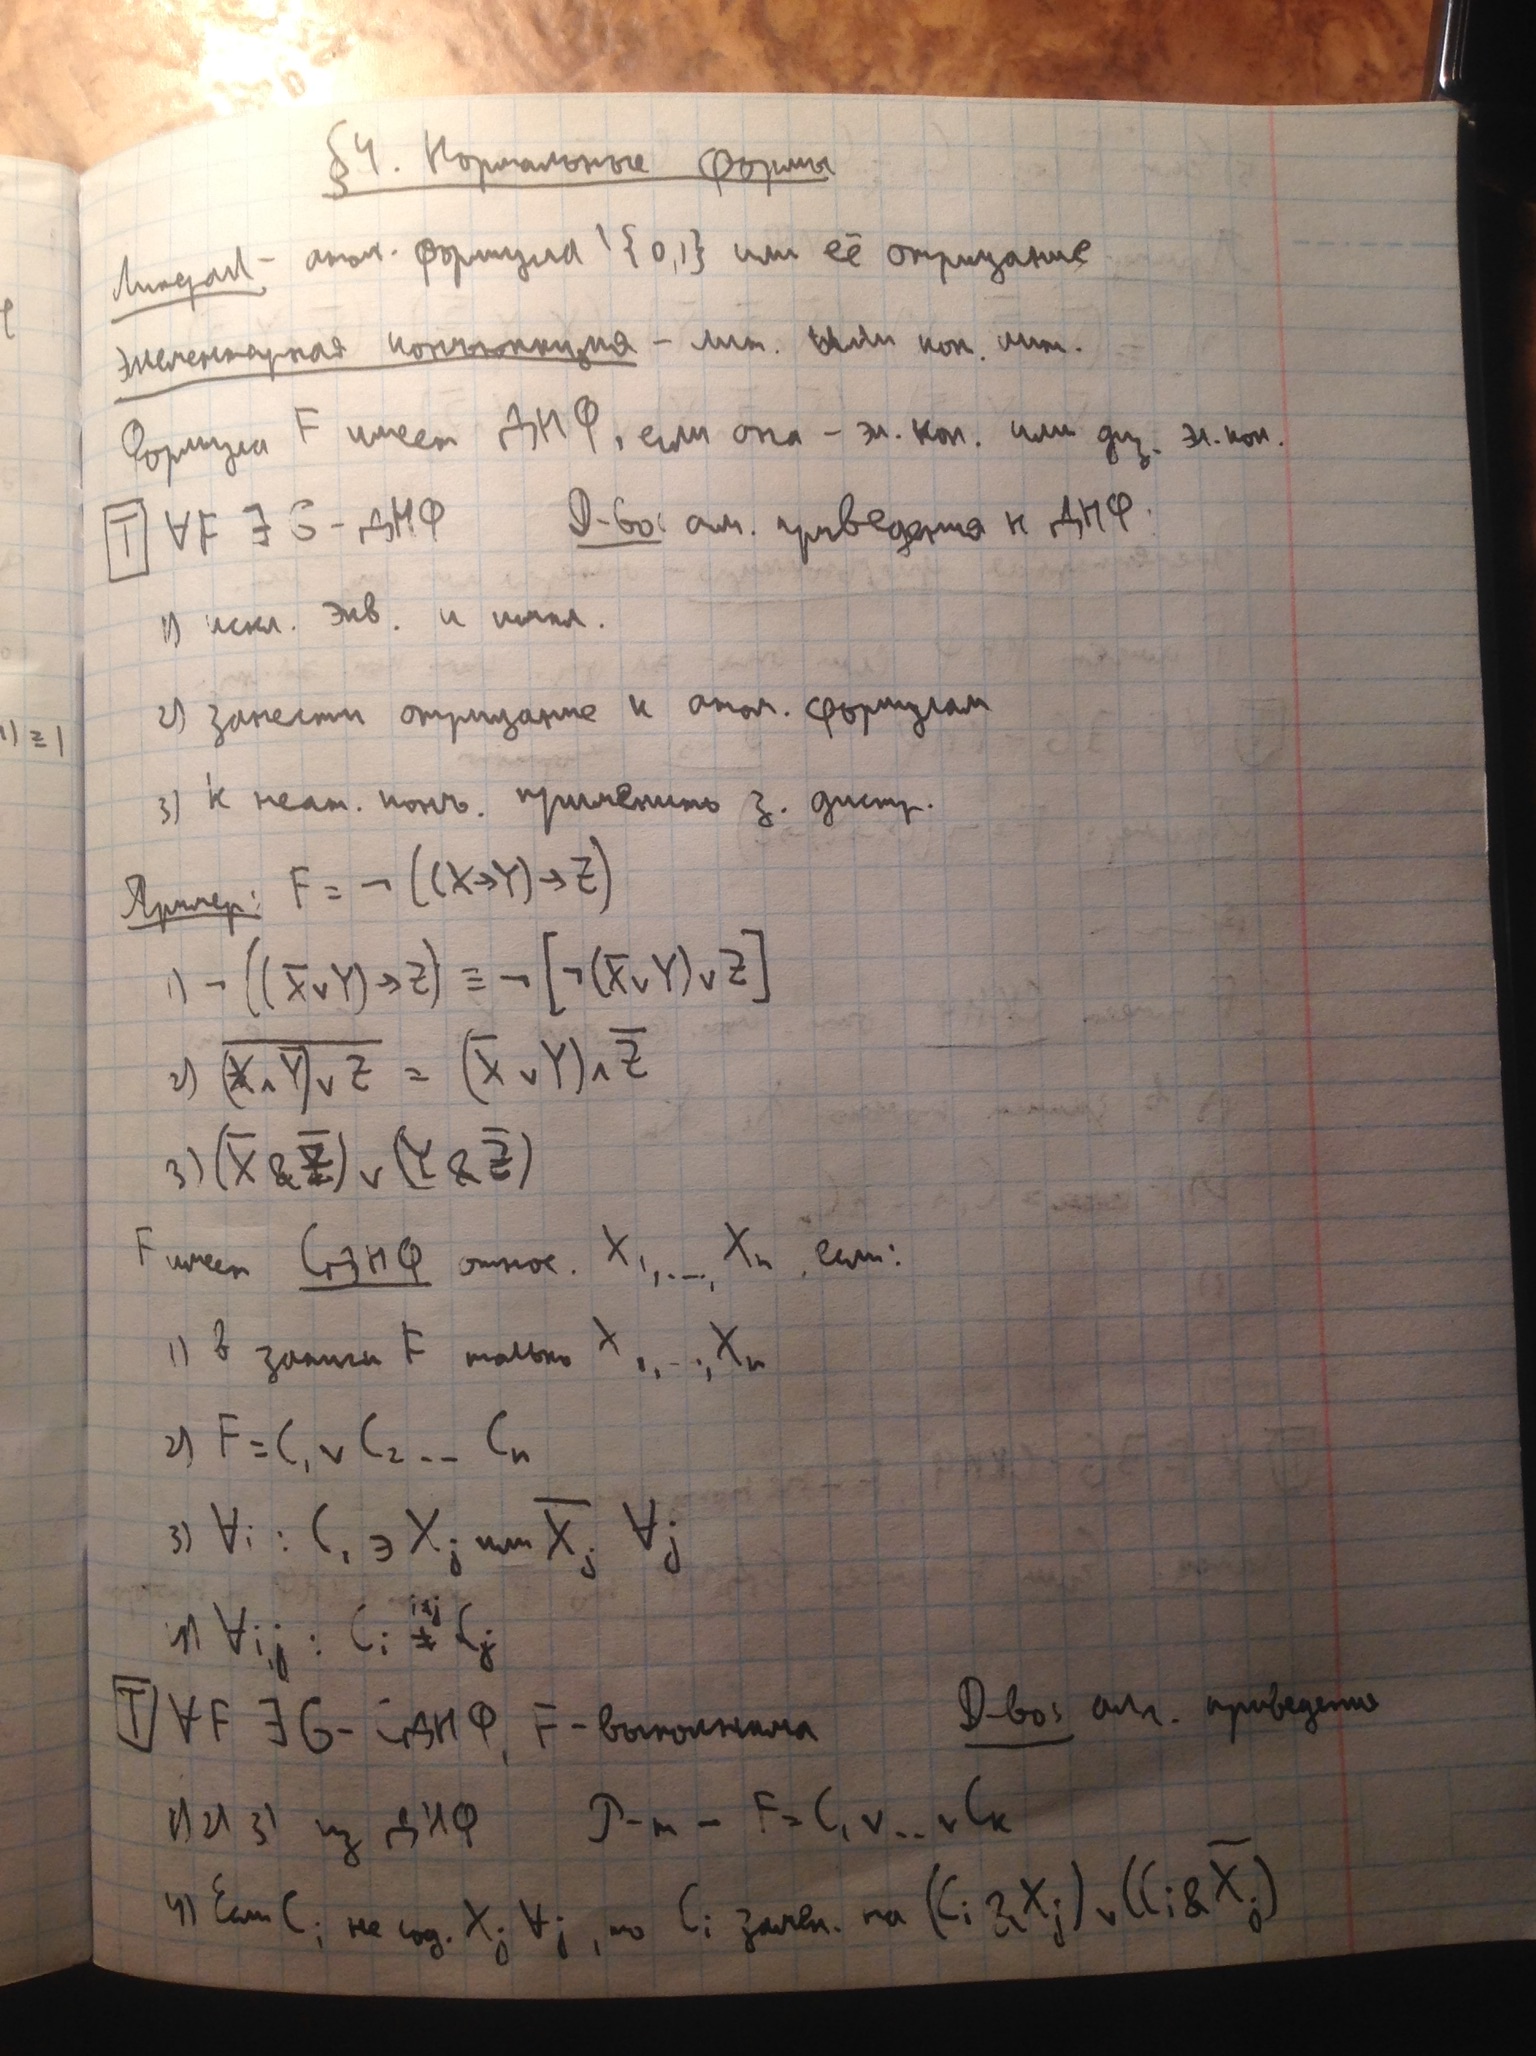 §4. Нормальные формы
Литерал - атом. формула \ {0,1} или её отрицание
Элементарная конъюнкция - лит. или кон. лит.
Формула F имеет ДНФ, если она - эл. кон. или диз. эл. кон.
T ∀F ∃G - ДНФ D-во: ал. приведения к ДНФ.
1) искл. экв. и импл.
2) занести отрицание к атом. формулам
3) К неат. конъ. применить з. дистр.
Пример: F = ¬((X→Y)→Z)
1) ¬((X̅∨Y)→Z) ≡ ¬[¬(X̅∨Y)∨Z]
2) \overline{(X∧Y̅)∨Z} = (X̅∨Y)∧Z̅
3) (X̅&Z̅)∨(Y&Z̅)
F имеет СДНФ относ. X₁,...,Xₙ, если:
1) В записи F только X₁,...,Xₙ
2) F=C₁∨C₂... Cₙ
3) ∀i : Cᵢ ∋ Xⱼ или X̅ⱼ ∀j
4) ∀i,j : Cᵢ ≠ Cⱼ
T ∀F ∃G - СДНФ, F - выполнима D-во: алг. приведения
1) 2) 3) из ДНФ Р-т - F=C₁∨...∨Cₖ
4) Если Cᵢ не сод. Xⱼ ∀j, то Cᵢ замен. на (Cᵢ&Xⱼ)∨(Cᵢ&X̅ⱼ)
1) ≡ 1